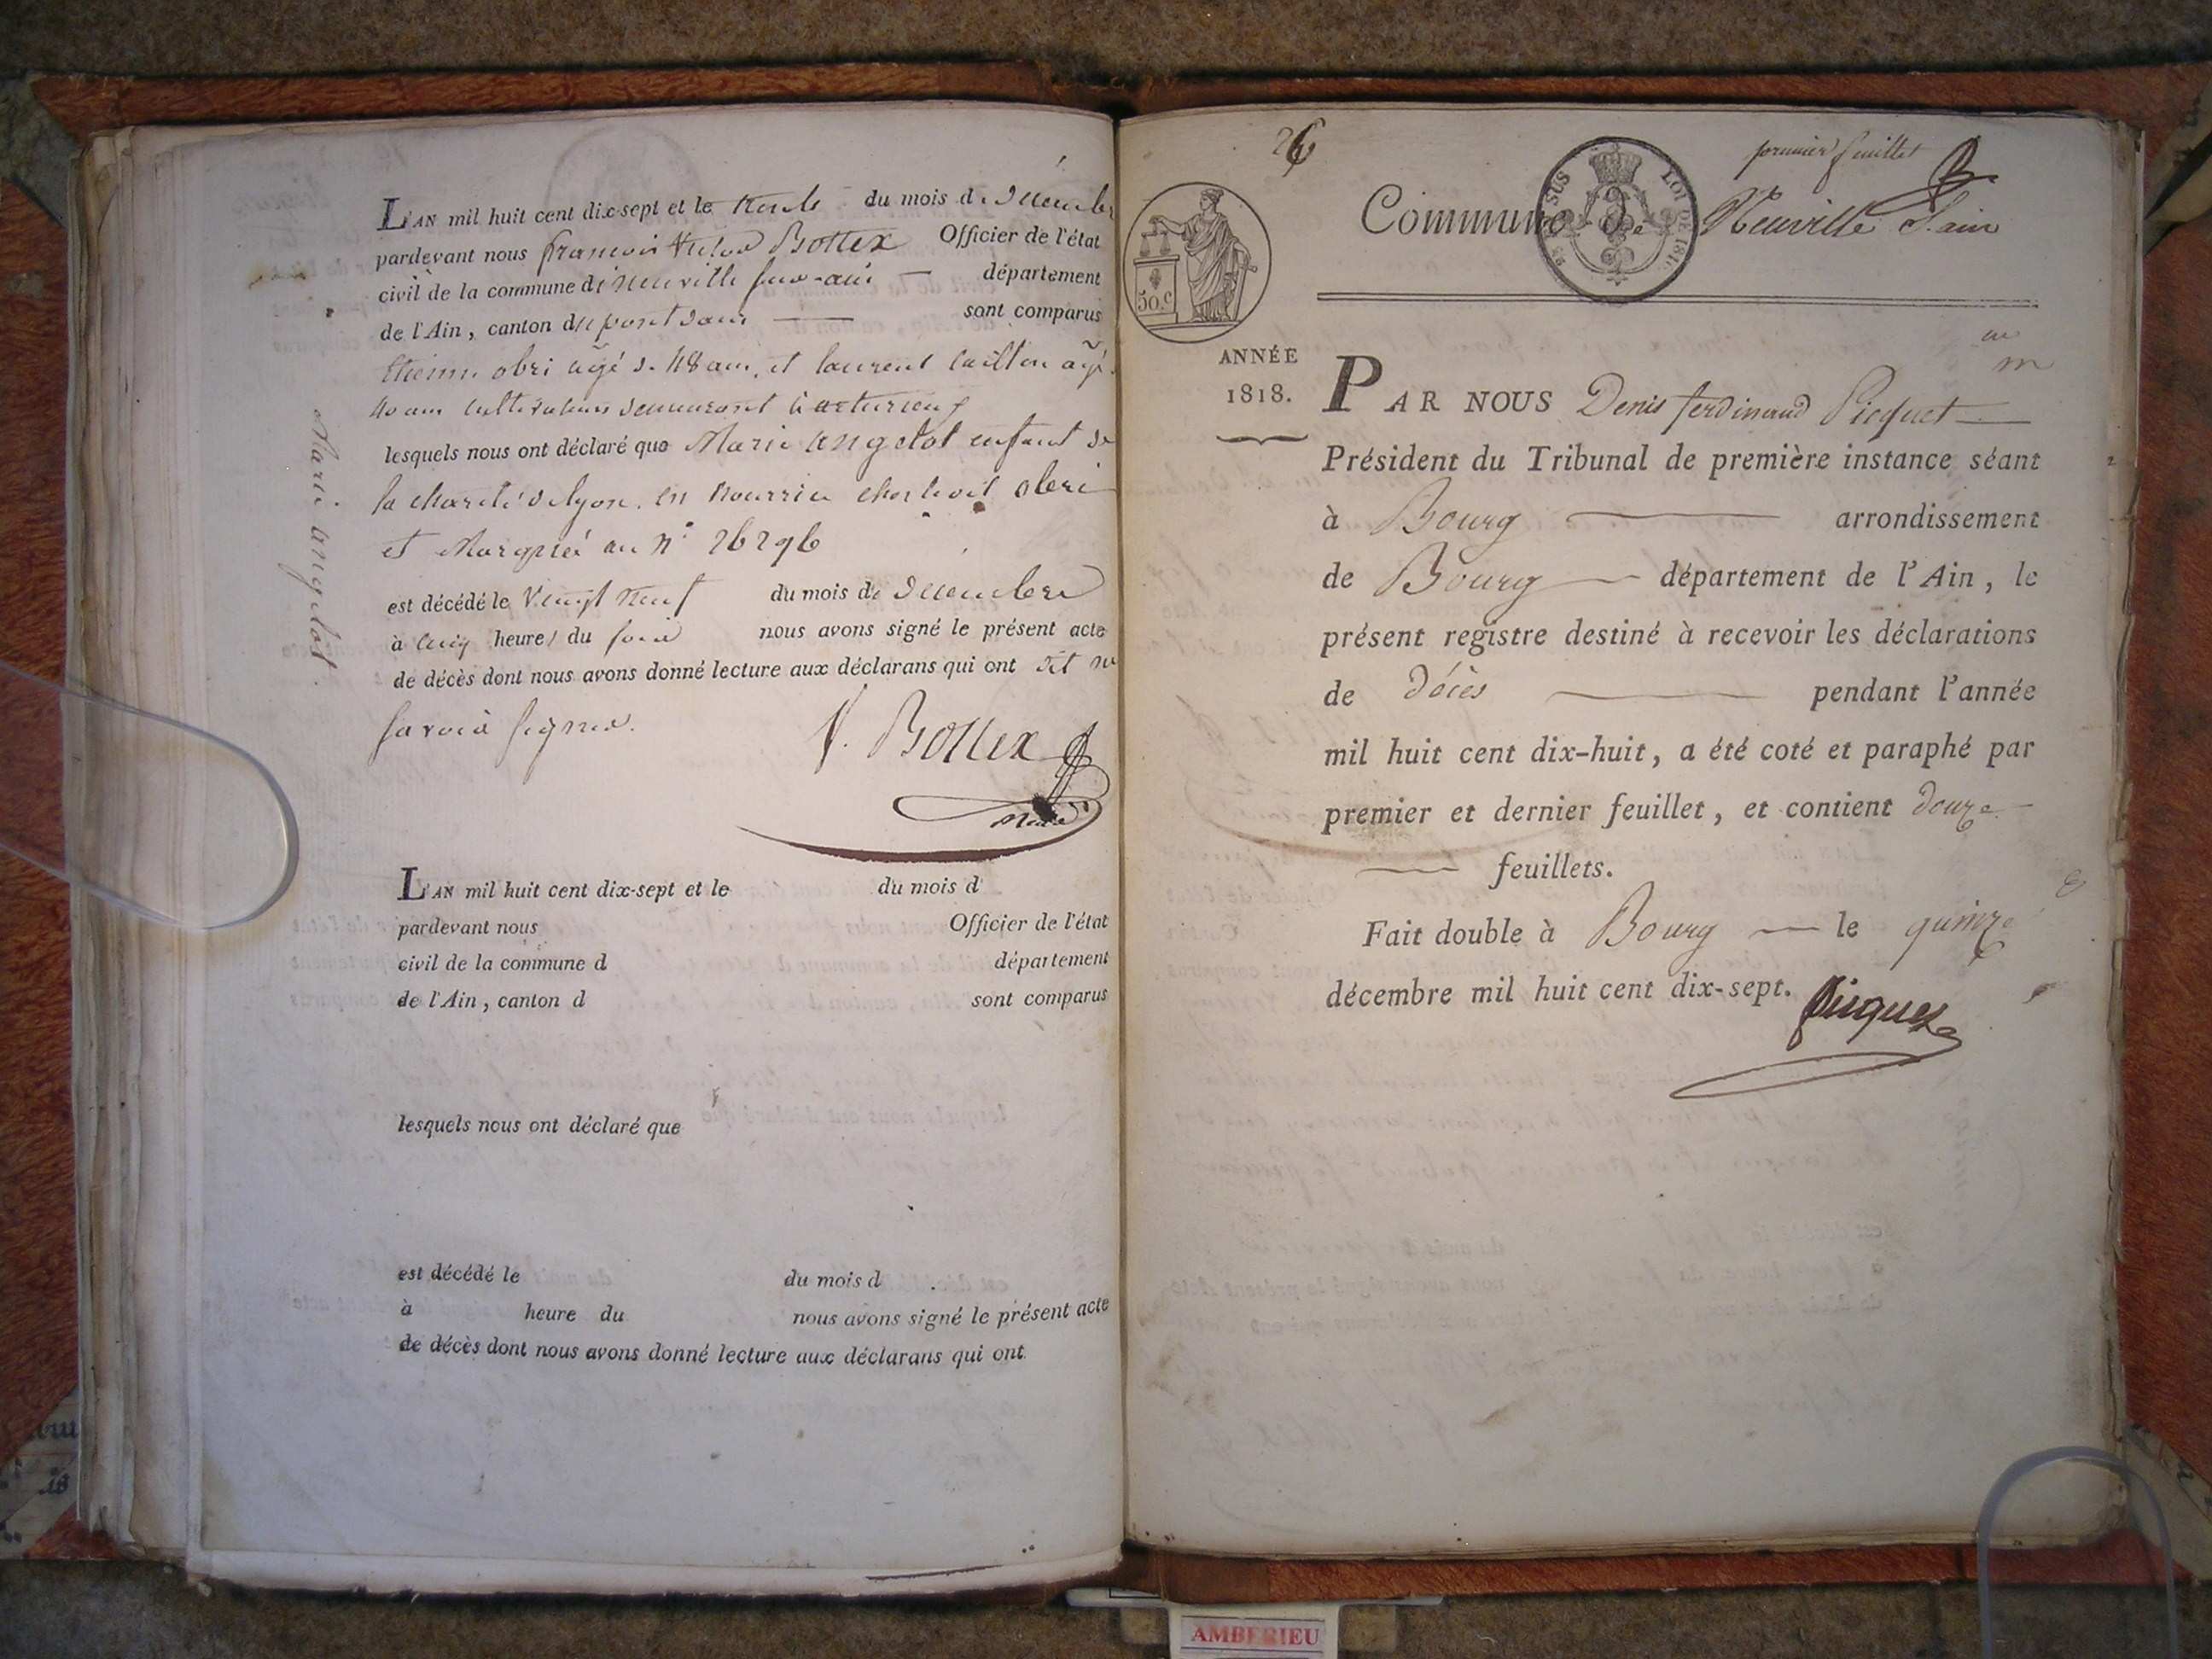 L'AN mil huit cent dix-sept et le trente du mois de décembre
pardevant nous francois Victor Bottex Officier de l'état
civil de la commune de neuville sur-ain département
de l'Ain, canton du pont dain sont comparus
Etienne obri agé de 48 ans, et laurent
40 ans cultivateurs demeurant à
lesquels nous ont déclaré que Marie angelot enfant de
la charité de lyon. en nourrice chez ledit obri
et Marquée au n° 26296
est décédé le vingt neuf du mois de decembre
à cinq heures du soir nous avons signé le présent acte
de décès dont nous avons donné lecture aux déclarans qui ont dit ne
savoir signer.
V. Bottex
Marie angelot.
L'AN mil huit cent dix-sept et le du mois d
pardevant nous Officier de l'état
civil de la commune d département
de l'Ain, canton d sont comparus
lesquels nous ont déclaré que
est décédé le du mois d
à heure du nous avons signé le présent acte
de décès dont nous avons donné lecture aux déclarans qui ont
26
premier feuillet
Commune De Neuville S. ain
SUS LOI DE 1816
50.c
ANNÉE
1818.
PAR NOUS Denis ferdinand Picquet
Président du Tribunal de première instance séant
à Bourg arrondissement
de Bourg département de l'Ain, le
présent registre destiné à recevoir les déclarations
de décès pendant l'année
mil huit cent dix-huit, a été coté et paraphé par
premier et dernier feuillet, et contient douze
feuillets.
Fait double à Bourg le quinze
décembre mil huit cent dix-sept.
Picquet
AMBERIEU